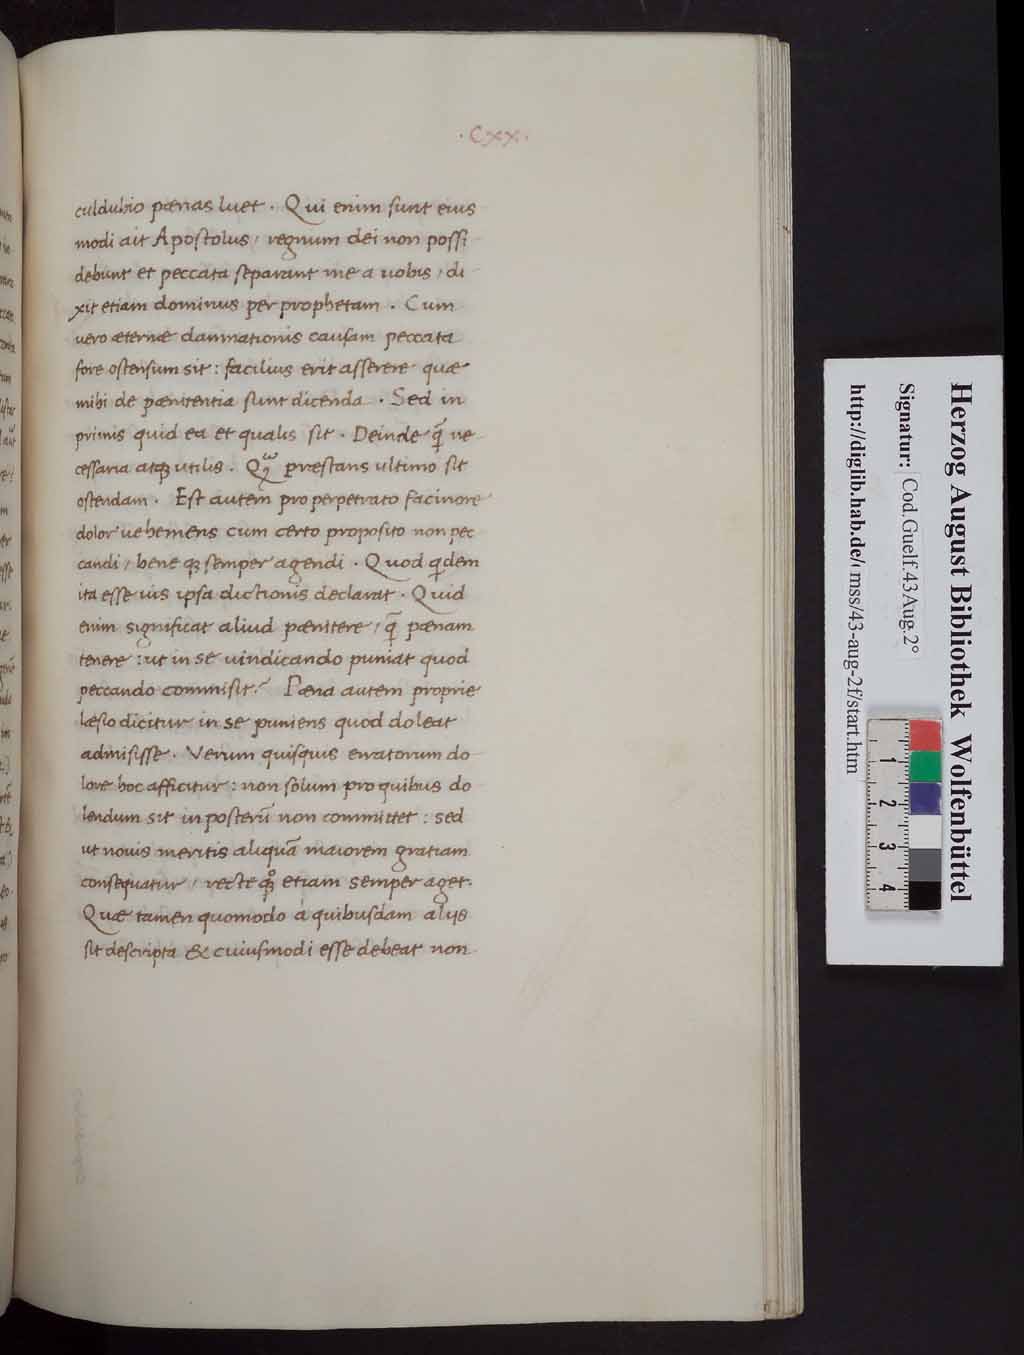 · Cxx ·
culdubio pœnas luet . Qui enim sunt eius
modi ait Apostolus / regnum dei non possi
debunt et peccata separant me a uobis / di
xit etiam dominus per prophetam . Cum
uero æternæ damnationis causam peccata
fore ostensum sit : facilius erit asserere quæ
mihi de pœnitentia sunt dicenda . Sed in
primis quid ea et qualis sit . Deinde q̃ ne
cessaria atqꝫ utilis . Qͫ præstans ultimo sit
ostendam . Est autem pro perpetrato facinore
dolor uehemens cum certo proposito non pec
candi / bene qꝫ semper agendi . Quod qdem
ita esse uis ipsa dictionis declarat . Quid
enim significat aliud pœnitere / q̃ pœnam
tenere : ut in se uindicando puniat quod
peccando commisit ? Pœna autem proprie
læsio dicitur in se puniens quod doleat
admisisse . Verum quisquis erratorum do
lore hoc afficitur : non solum pro quibus do
lendum sit in posterũ non committet : sed
ut nouis meritis aliquã maiorem gratiam
consequatur / recte qꝫ etiam semper aget .
Quæ tamen quomodo a quibusdam alijs
sit descripta & cuiusmodi esse debeat non
Herzog August Bibliothek Wolfenbüttel
Signatur: Cod.Guelf.43Aug.2°
http://diglib.hab.de/ mss/43-aug-2f/start.htm
1
2
3
4